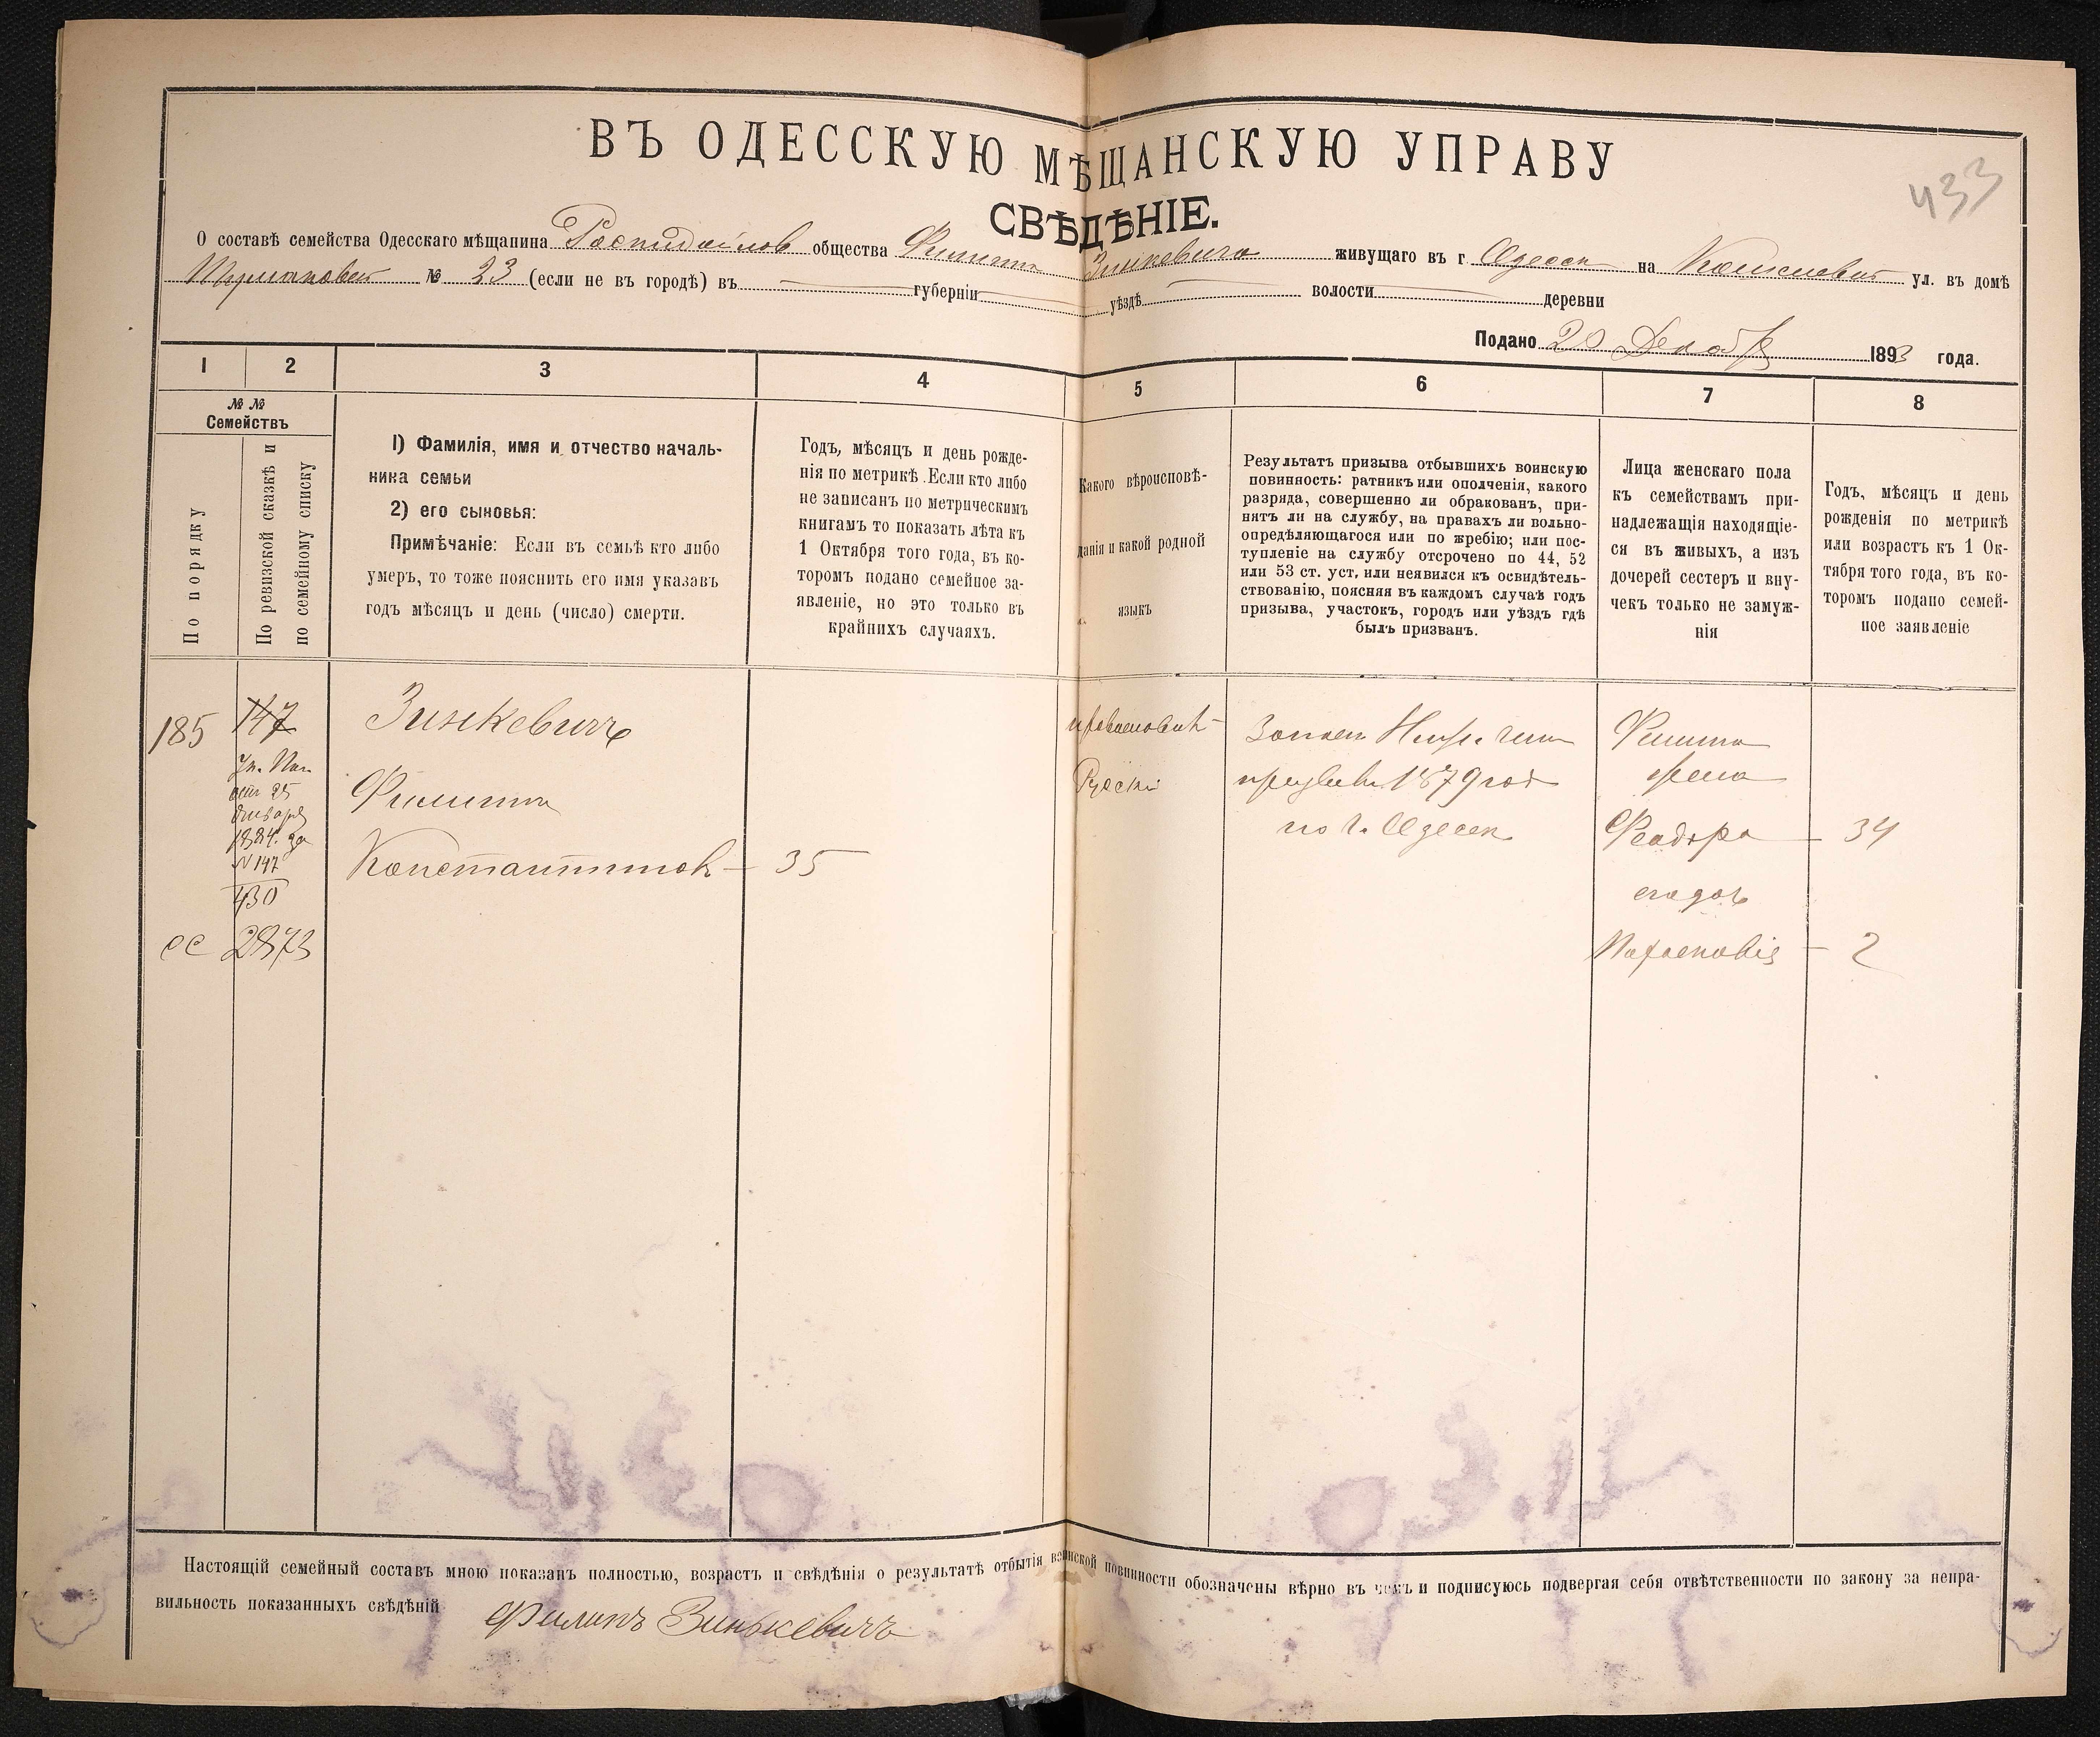 433
ВЪ ОДЕССКУЮ МѢЩАНСКУЮ УПРАВУ
СВѢДѢНІЕ.
О составѣ семейства Одесскаго мѣщанина общества Филиппа Зинкевича живущаго въ г. Одессѣ на ул. въ домѣ
№ 23 (если не въ городѣ) въ губерніи уѣздѣ волости деревни
Подано 20 Декабр 1893 года.
1 2 3 4 5 6 7 8
№ №
Семействъ
По порядку
По ревизской сказкѣ и
по семейному списку
1) Фамилія, имя и отчество началь-
ника семьи
2) его сыновья:
Примѣчаніе: Если въ семьѣ кто либо
умеръ, то тоже пояснить его имя указавъ
годъ мѣсяцъ и день (число) смерти.
Годъ, мѣсяцъ и день рожде-
нія по метрикѣ. Если кто либо
не записанъ по метрическимъ
книгамъ то показать лѣта къ
1 Октября того года, въ ко-
торомъ подано семейное за-
явленіе, но это только въ
крайнихъ случаяхъ.
Какого вѣроисповѣ-
данія и какой родной
языкъ
Результатъ призыва отбывшихъ воинскую
повинность: ратникъ или ополченія, какого
разряда, совершенно ли обракованъ, при-
нятъ ли на службу, на правахъ ли вольно-
опредѣляющагося или по жребію; или пос-
тупленіе на службу отсрочено по 44, 52
или 53 ст. уст. или неявился къ освидѣтель-
ствованію, поясняя въ каждомъ случаѣ годъ
призыва, участокъ, городъ или уѣздъ гдѣ
былъ призванъ.
Лица женскаго пола
къ семействамъ при-
надлежащія находящіе-
ся въ живыхъ, а изъ
дочерей сестеръ и вну-
чекъ только не замуж-
нія
Годъ, мѣсяцъ и день
рожденія по метрикѣ
или возрастъ къ 1 Ок-
тября того года, въ ко-
торомъ подано семей-
ное заявленіе
185 147 Зинкевичъ
25
Января
1884. за
N 147
430
Филиппъ
Константиновъ — 35
сс 2873
Русскій
1879 год
по г. Одесс
Филиппа
жена
Феодора — 34
— 2
Настоящій семейный составъ мною показанъ полностью, возрастъ и свѣдѣнія о результатѣ отбытія воинской повинности обозначены вѣрно въ чемъ и подписуюсь подвергая себя отвѣтственности по закону за непра-
вильность показанныхъ свѣдѣній Филипъ Зинькевичъ